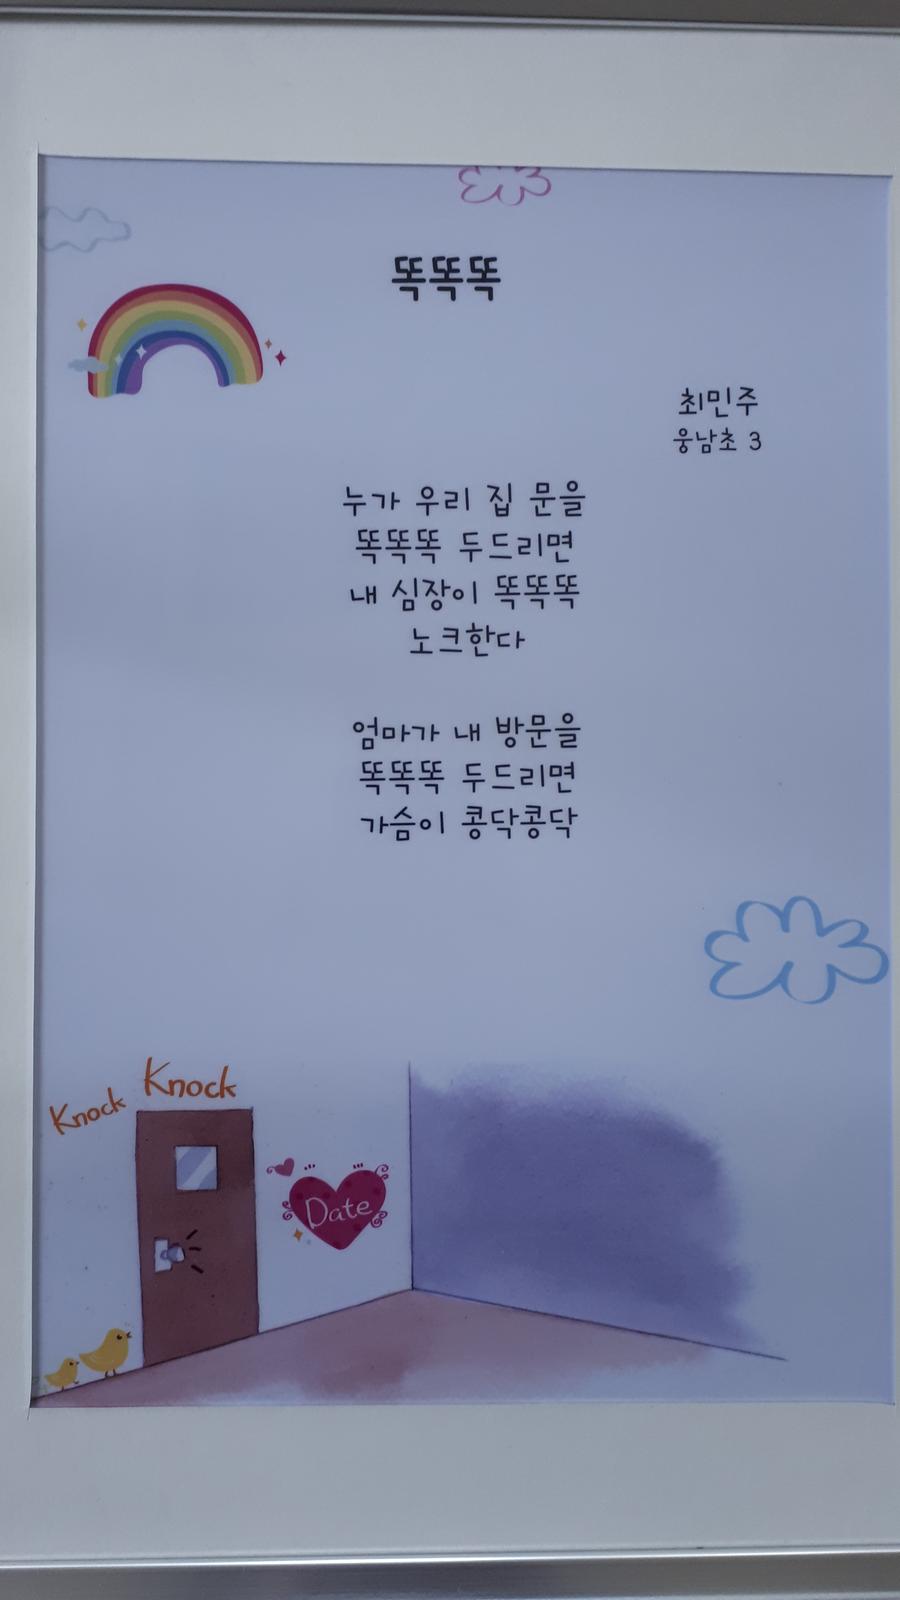 똑똑똑
최민주
웅남초 3
누가 우리 집 문을
똑똑똑 두드리면
내 심장이 똑똑똑
노크한다
엄마가 내 방문을
똑똑똑 두드리면
가슴이 콩닥콩닥
Knock Knock
Date